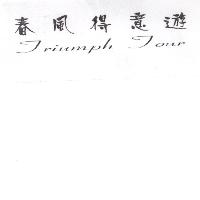 春風得意遊
Triumph Tour